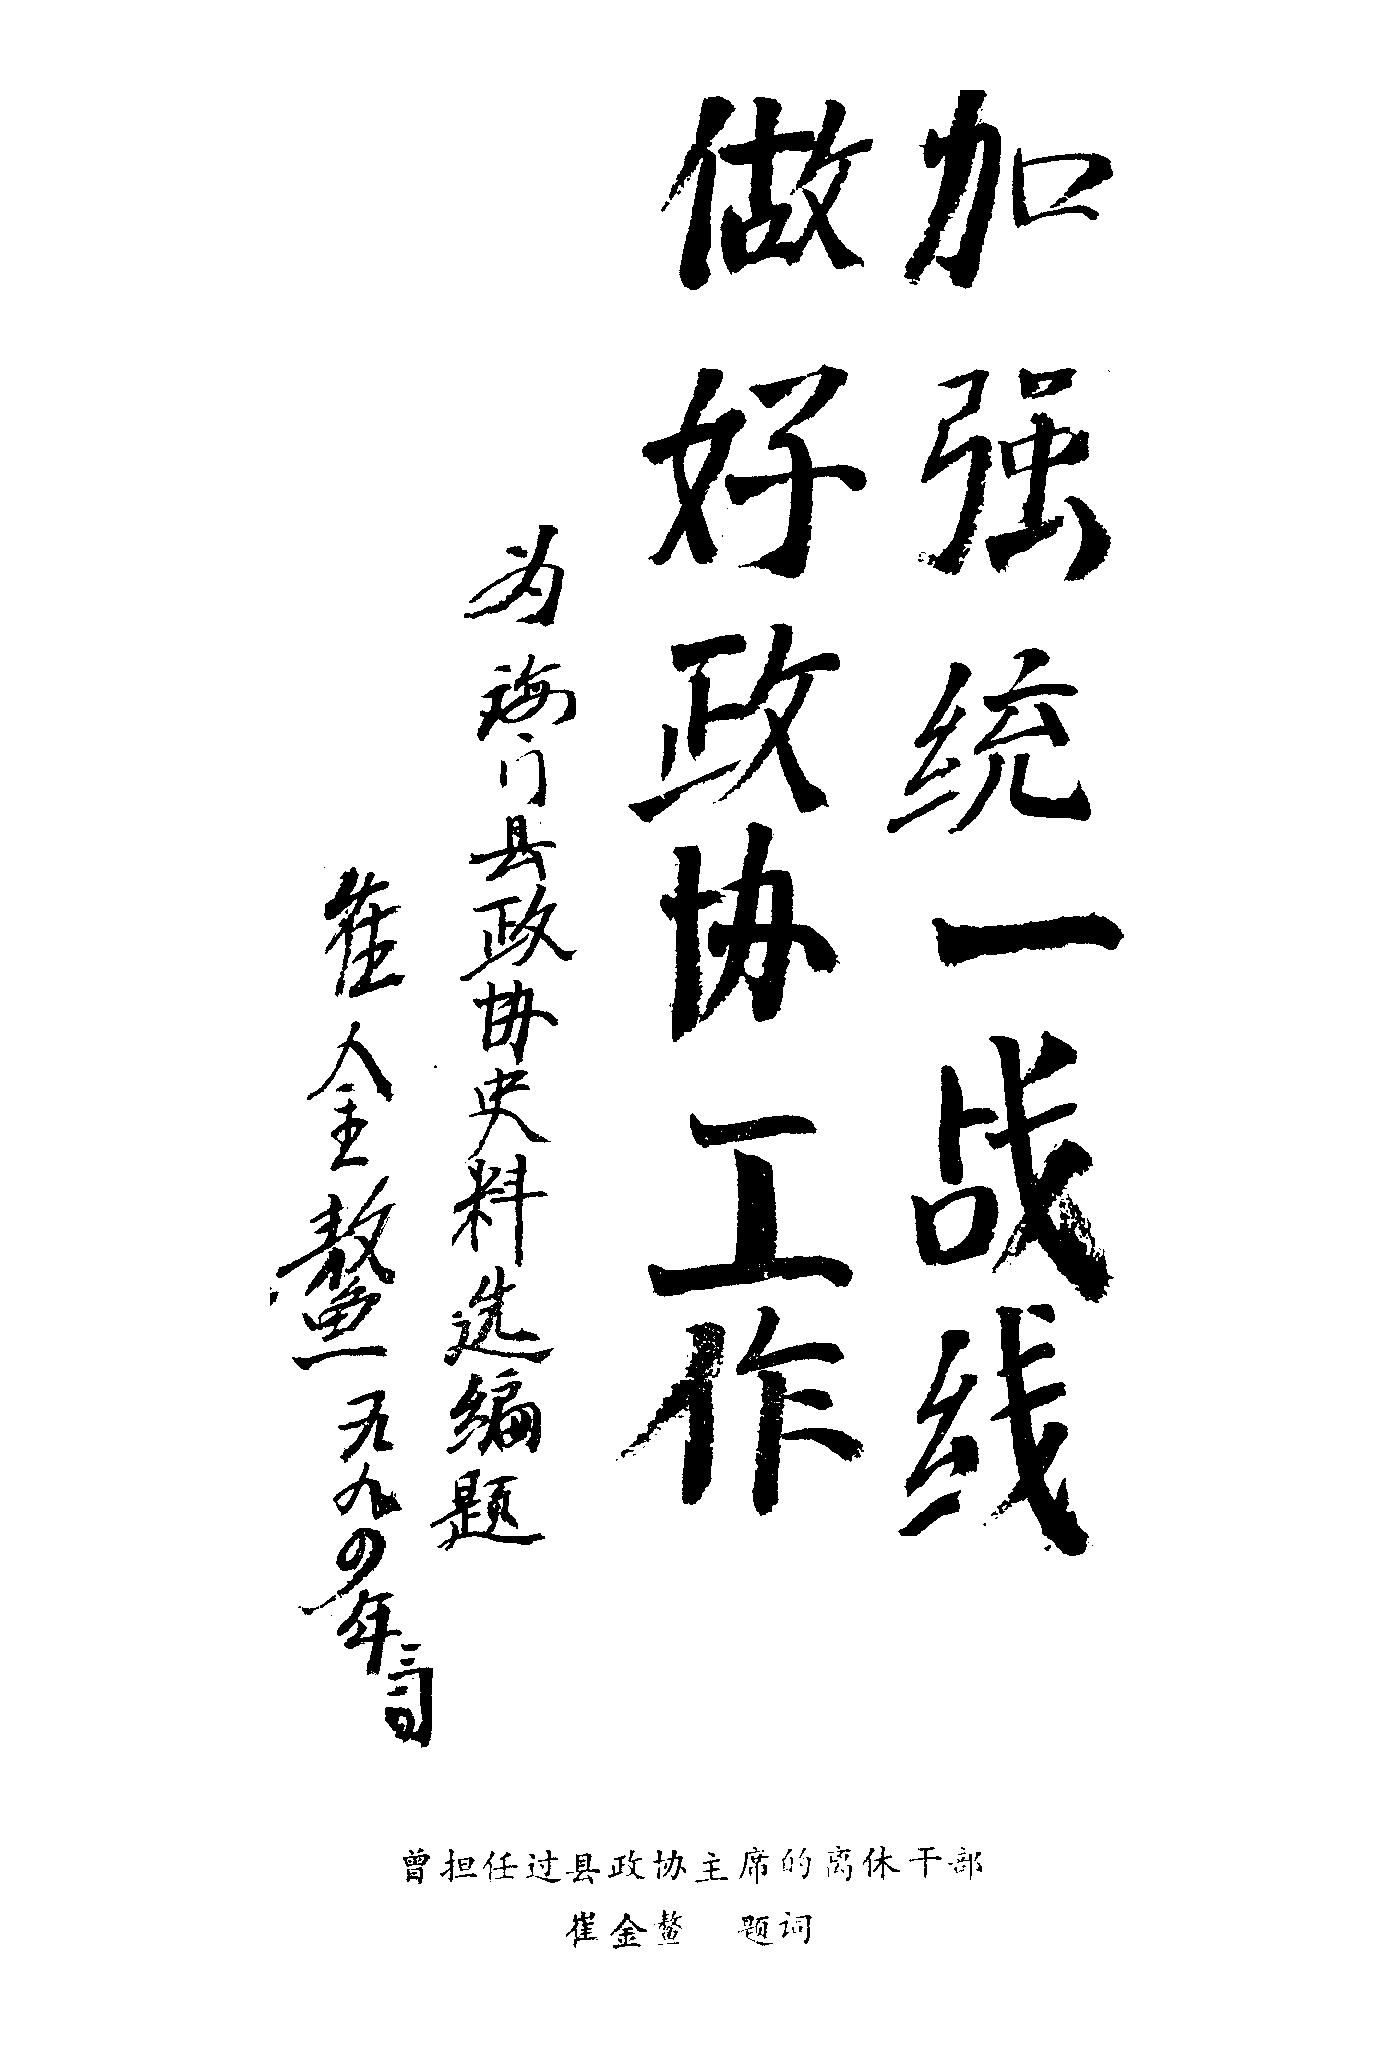 加强统一战线
做好政协工作
为海门县政协史料选编题
崔金鳌一九九〇年三月
曾担任过县政协主席的离休干部
崔金鳌 题词